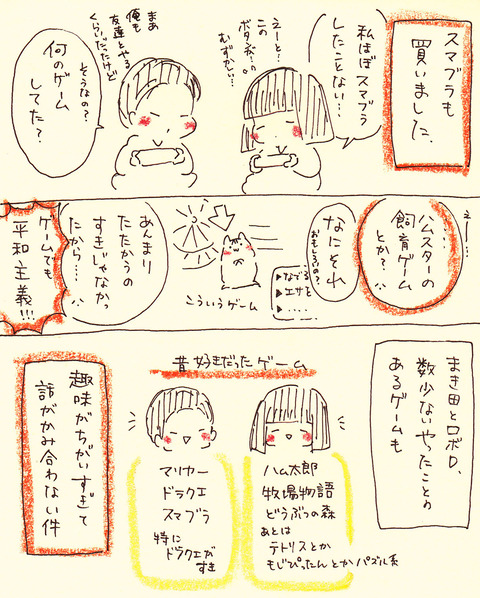 スマブラも
買いました。
私ほぼスマブラ
したことない…
えーと!…
この
ボタンが…。
むずかしい…
まあ
俺も
友達とやる
くらいだったけど
そうなの?
何のゲーム
してた?
えー…
ハムスターの
飼育ゲーム
とか?…
なにそれ
おもしろいの?
▶なでる
▶エサを
▶....
こういうゲーム
あんまり
たたかうの
すきじゃなかっ
たから…
ゲームでも
平和主義!!!
まき田とロボロ、
数少ないやったことの
あるゲームも
昔好きだったゲーム
ハム太郎
牧場物語
どうぶつの森
あとは
テトリスとか
もじぴったんとかパズル系
マリカー
ドラクエ
スマブラ
特に
ドラクエが
すき
趣味がちがいすぎて
話がかみ合わない件